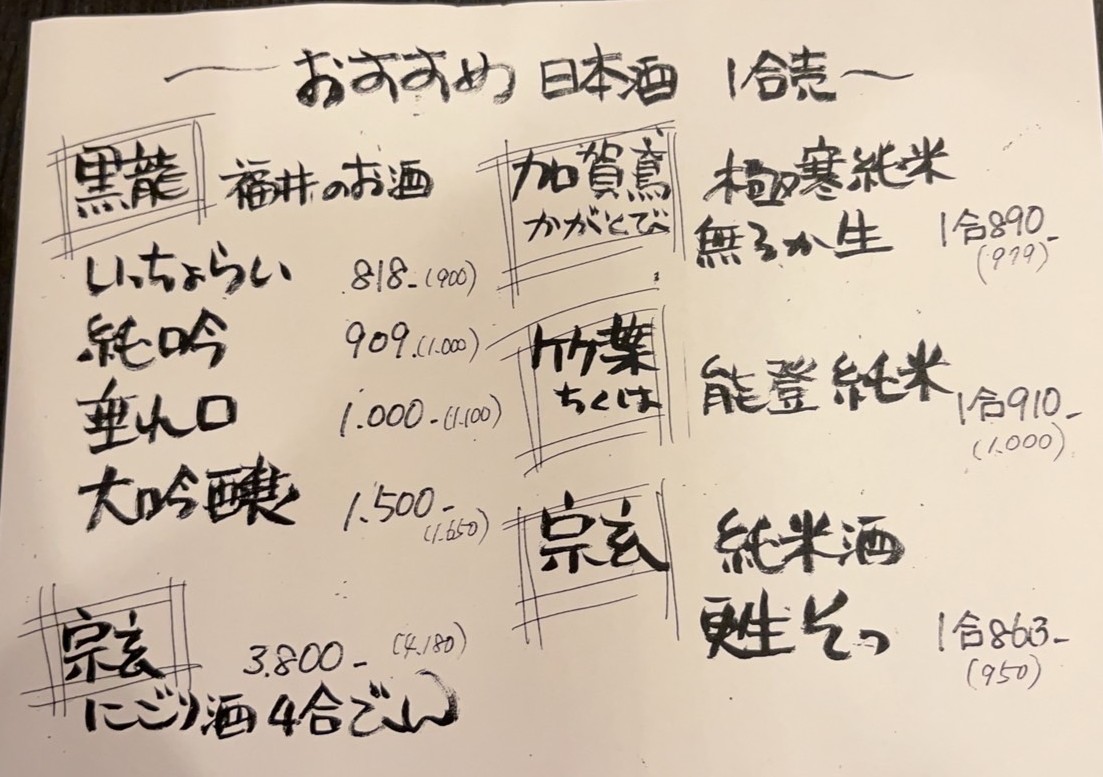 〜おすすめ 日本酒 1合売〜
黒龍 福井のお酒
いっちょらい 818-(900)
純吟 909.(1.000)
垂れ口 1.000-(1.100)
大吟醸 1.500-(1.650)
宗玄 3.800-(4.180)
にごり酒 4合びん
加賀鳶 極寒純米
かがとび 無ろか生 1合890-
(979)
竹葉 能登純米
ちくは 1合910-
(1.000)
宗玄 純米酒
甦生 1合863-
(950)